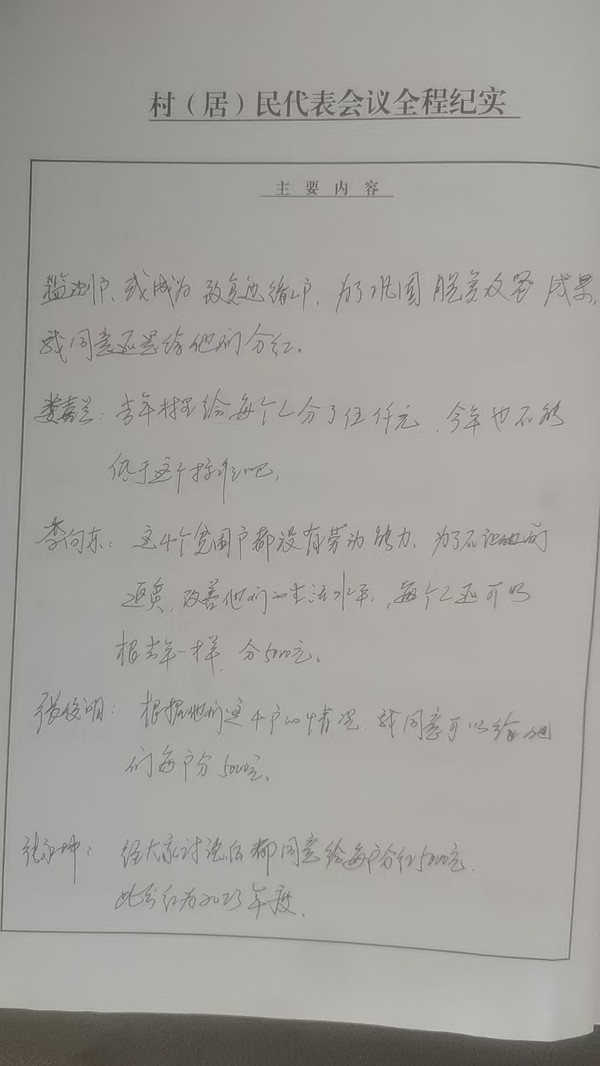 村（居）民代表会议全程纪实
主要内容
监测户、或成为致贫边缘户，为了巩固脱贫攻坚成果，
我同意还是给他们分红。
娄嘉兰：去年村里给每个人分了伍仟元，今年也不能
低于这个标准吧。
李向东：这4个贫困户都没有劳动能力，为了不让他们
返贫，改善他们的生活水平，每个人还可以
根去年一样，分5000元。
张俊明：根据他们这4户的情况，我同意可以给他
们每户分5000元。
经大家讨论后都同意给每户分红5000元，
此分红为2023年度。